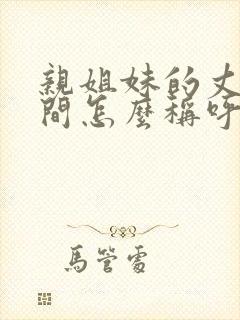 親姐妹的丈
間怎麼稱呼
馬管雷